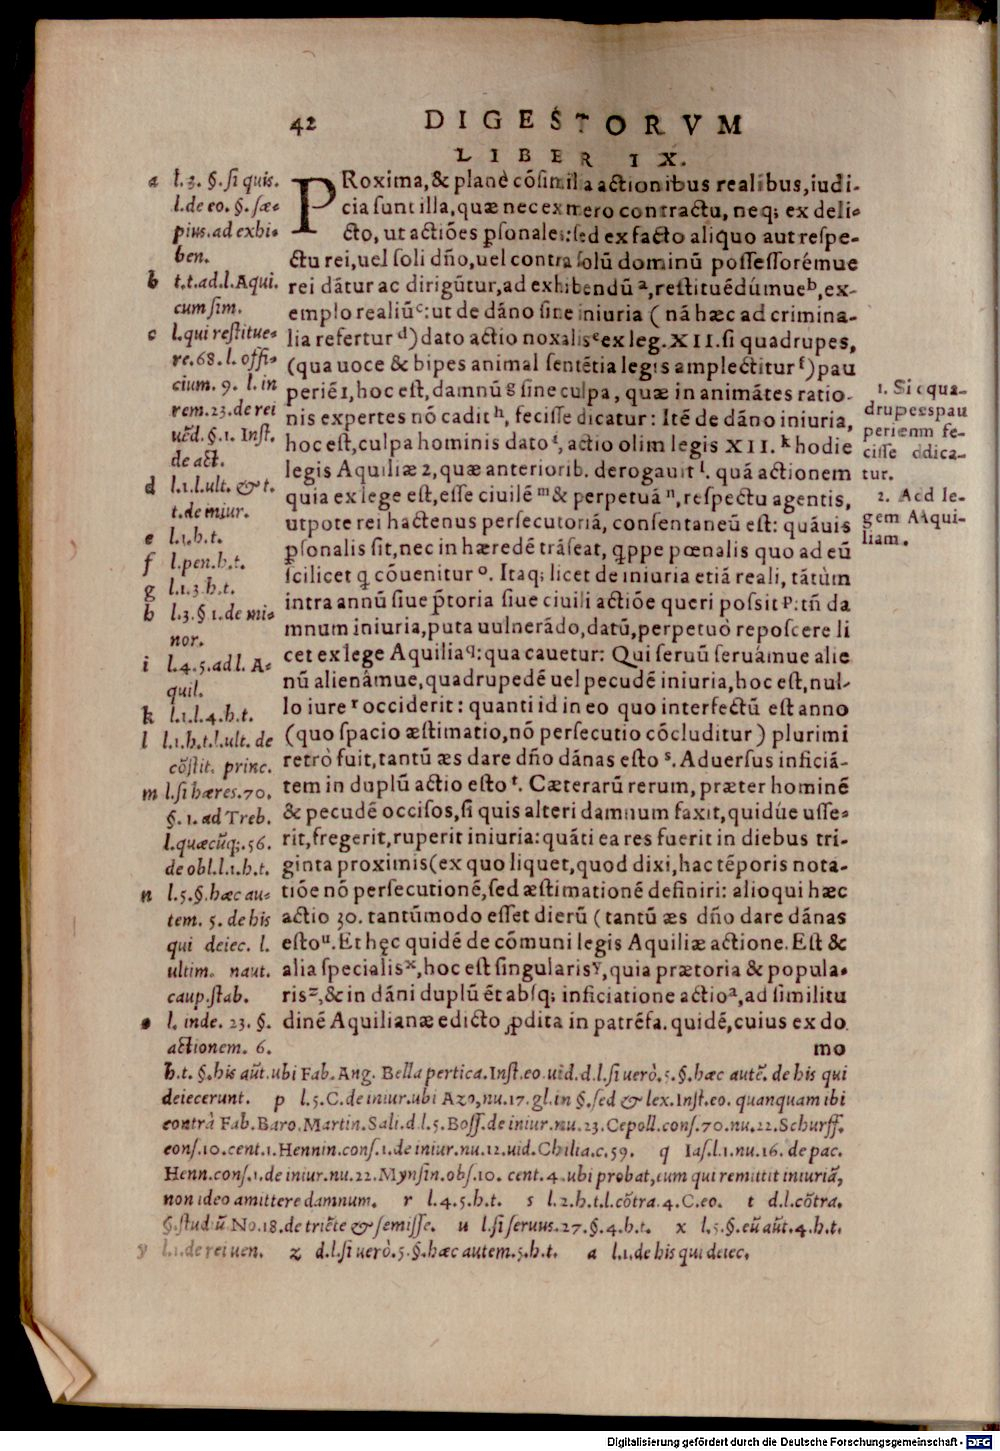 42 DIGESTORVM
LIBER IX.
PRoxima, & planè cõsimilia actionibus realibus, iudi-
cia sunt illa, quæ nec ex mero contractu, neq; ex deli-
cto, ut actiões ꝑsonales: sed ex facto aliquo aut respe-
ctu rei, uel soli dño, uel contra solũ dominũ possessorémue
rei dãtur ac dirigũtur, ad exhibendũ ᵃ, restituẽdúmue ᵇ, ex-
emplo realiũ ᶜ: ut de dãno sine iniuria ( nã hæc ad crimina-
lia refertur ᵈ) dato actio noxalis ᵉ ex leg. XII. si quadrupes,
(qua uoce & bipes animal sentẽtia legis amplectitur ᶠ) pau
periẽ 1, hoc est, damnũ ᵍ sine culpa, quæ in animãtes ratio-
nis expertes nõ cadit ʰ, fecisse dicatur: Itẽ de dãno iniuria,
hoc est, culpa hominis dato ⁱ, actio olim legis XII. ᵏ hodie
legis Aquiliæ 2, quæ anteriorib. derogauit ˡ. quã actionem
quia ex lege est, esse ciuilẽ ᵐ & perpetuã ⁿ, respectu agentis,
utpote rei hactenus persecutoriã, consentaneũ est: quãuis
ꝑsonalis sit, nec in hæredẽ trãseat, qppe pœnalis quo ad eũ
scilicet q̃ cõuenitur ᵒ. Itaq; licet de iniuria etiã reali, tãtùm
intra annũ siue p̃toria siue ciuili actiõe queri possit ᵖ: tñ da
mnum iniuria, puta uulnerãdo, datũ, perpetuò reposcere li
cet ex lege Aquilia ᵠ: qua cauetur: Qui seruũ seruámue alie
nũ alienámue, quadrupedẽ uel pecudẽ iniuria, hoc est, nul-
lo iure ʳ occiderit: quanti id in eo quo interfectũ est anno
(quo spacio æstimatio, nõ persecutio cõcluditur) plurimi
retrò fuit, tantũ æs dare dño dãnas esto ˢ. Aduersus inficiã-
tem in duplũ actio esto ᵗ. Cæterarũ rerum, præter hominẽ
& pecudẽ occisos, si quis alteri damnum faxit, quidúe usse-
rit, fregerit, ruperit iniuria: quãti ea res fuerit in diebus tri-
ginta proximis (ex quo liquet, quod dixi, hac tẽporis nota-
tiõe nõ persecutionẽ, sed æstimationẽ definiri: alioqui hæc
actio 30. tantũmodo esset dierũ ( tantũ æs dño dare dãnas
esto ᵘ. Et hęc quidẽ de cõmuni legis Aquiliæ actione. Est &
alia specialis ˣ, hoc est singularis ʸ, quia prætoria & popula-
ris ᶻ, & in dãni duplũ ẽt absq; inficiatione actio ᵃ, ad similitu
dinẽ Aquilianæ edicto ꝓdita in patrẽfa. quidẽ, cuius ex do
mo
a l.3. §. si quis.
l.de eo. §. sæ-
pius. ad exhi-
ben.
b t.t.ad.l.Aqui.
cum sim.
c l.qui restitue-
re. 68. l. offi-
cium. 9. l. in
rem. 23. de rei
uẽd. §. 1. Inst.
de act.
d l.1.l.ult. & t.
t.de iniur.
e l.1.h.t.
f l.pen.h.t.
g l.1.3 h.t.
h l.3. § 1. de mi-
nor.
i l.4.5.ad l. A-
quil.
k l.1.l.4.h.t.
l l.1.h.t.l.ult. de
cõstit. princ.
m l.si hæres. 70.
§. 1. ad Treb.
l.quæcũq;. 56.
de obl.l.1.h.t.
n l.5.§.hæc au-
tem. 5. de his
qui deiec. l.
ultim. naut.
caup.stab.
o l. inde. 23. §.
actionem. 6.
1. Si quadrupes pau
periem fe-
cisse dica-
tur.
2. Ad le-
gem Aqui-
liam.
h.t. §. his aũt. ubi Fab. Ang. Bella pertica. Inst.eo. uid. d.l.si uerò. 5. §. hæc autẽ. de his qui
deiecerunt. p l.5. C.de iniur. ubi Azo, nu.17. gl. in §. sed & lex. Inst.eo. quanquam ibi
contrà Fab. Baro. Martin. Sali. d.l.5. Boss. de iniur. nu. 23. Cepoll. cons. 70. nu. 22. Schurff.
cons. 10. cent. 1. Hennin. cons. 1. de iniur. nu. 12. uid. Chilia. c. 59. q Ias.l.1. nu. 16. de pac.
Henn. cons. 1. de iniur. nu. 22. Mynsin. obs. 10. cent. 4. ubi probat, eum qui remittit iniuriã,
non ideo amittere damnum. r l.4.5.h.t. s l.2.h.t.l.cõtra.4.C.eo. t d.l.cõtra.
§. stud ũ No. 18. de triẽte & semisse. u l.si seruus. 27. §. 4. h.t. x l.5. §. eũ aũt. 4. h.t.
y l.1. de rei uen. z d.l.si uerò. 5. §. hæc autem. 5. h.t. a l.1. de his qui deiec.
Digitalisierung gefördert durch die Deutsche Forschungsgemeinschaft - DFG